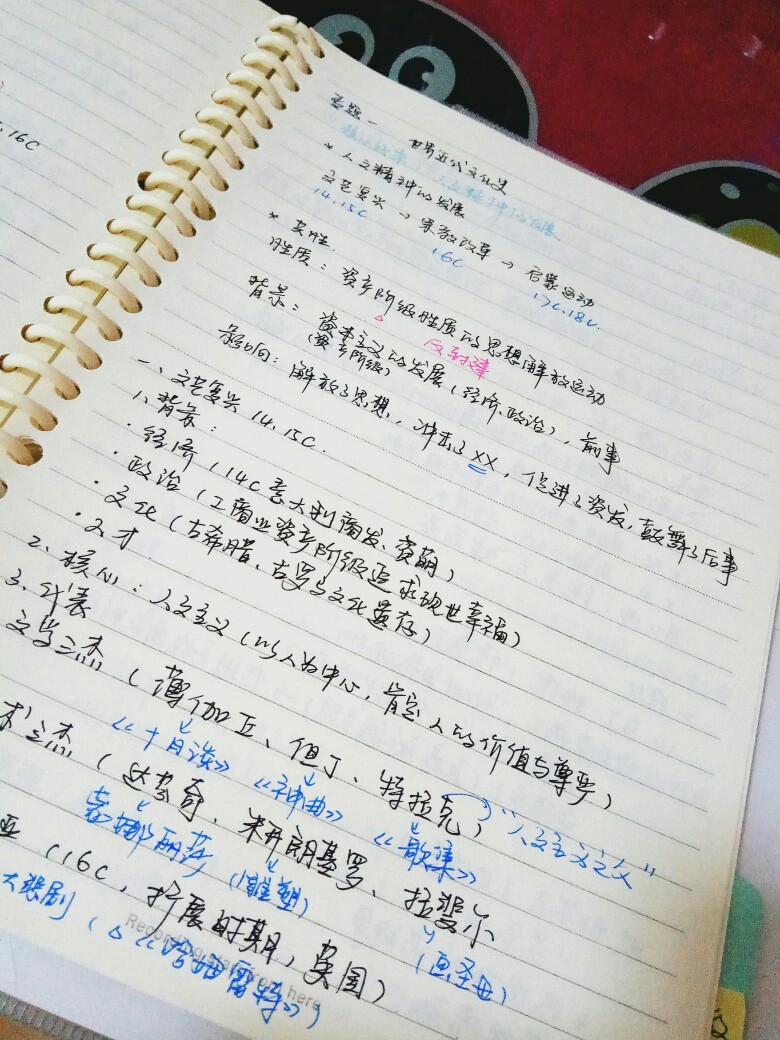 16C
专题一 世界近代文化史
* 人文精神的发展
文艺复兴 → 宗教改革 → 启蒙运动
14.15C 16C 17C.18C.
* 共性
性质：资产阶级性质的思想解放运动
反封建
背景：资本主义的发展（经济、政治），前事
（资产阶级）
影响：解放了思想，冲击了XX，促进了资发，鼓舞了后事
一、文艺复兴 14.15C.
1.背景：
·经济（14C意大利商发、资萌）
·政治（工商业资产阶级追求现世幸福）
·文化（古希腊、古罗马文化遗存）
·人才
2.核心：人文主义（以人为中心，肯定人的价值与尊严）
3.代表
文学三杰（薄伽丘、但丁、特拉克）
《十日谈》 《神曲》 《歌集》 "人文主义之父"
术三杰（达芬奇、米开朗基罗、拉斐尔
蒙娜丽莎 （雕塑） （画圣母）
亚（16C，扩展时期，英国）
大悲剧（△《哈姆雷特》）
Recording start from here